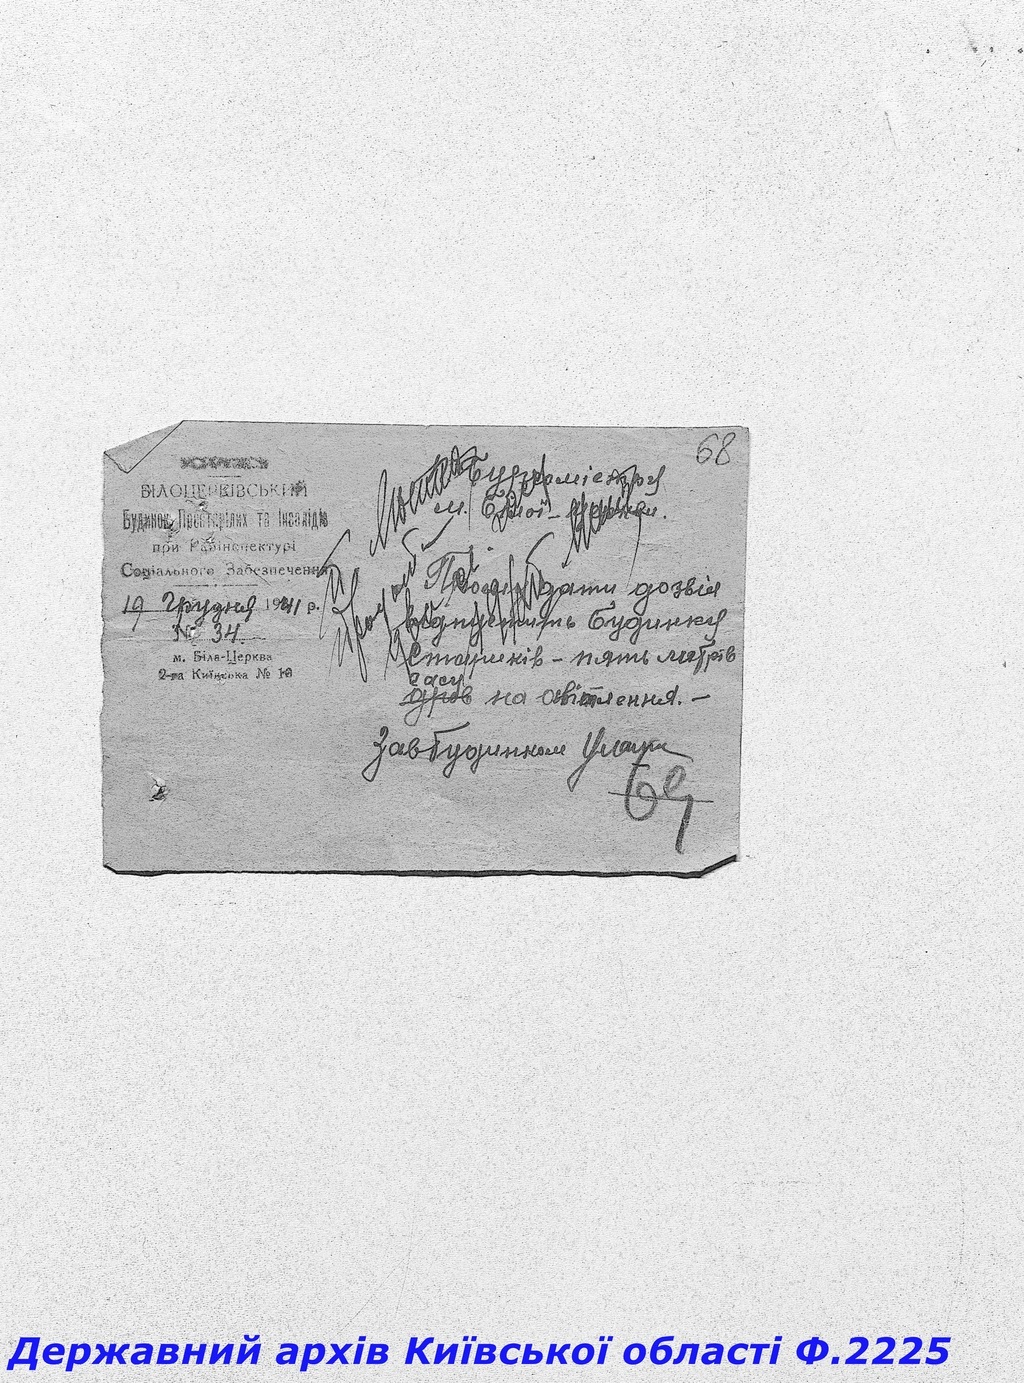 68
БІЛОЦЕРКІВСЬКИЙ
Будинок Престарілих та Інвалідів
при Райінспектурі
Соціального Забезпечення
19 Грудня 1941 р.
№ 34
м. Біла-Церква
2-га Київська № 10
Бургомістру
м. Білої-Церкви.
Прошу дати дозвіл
відпустить Будинку
Стариків - пять літрів
гасу
дров на освітлення. -
Завбудинком
69
Державний архів Київської області Ф.2225